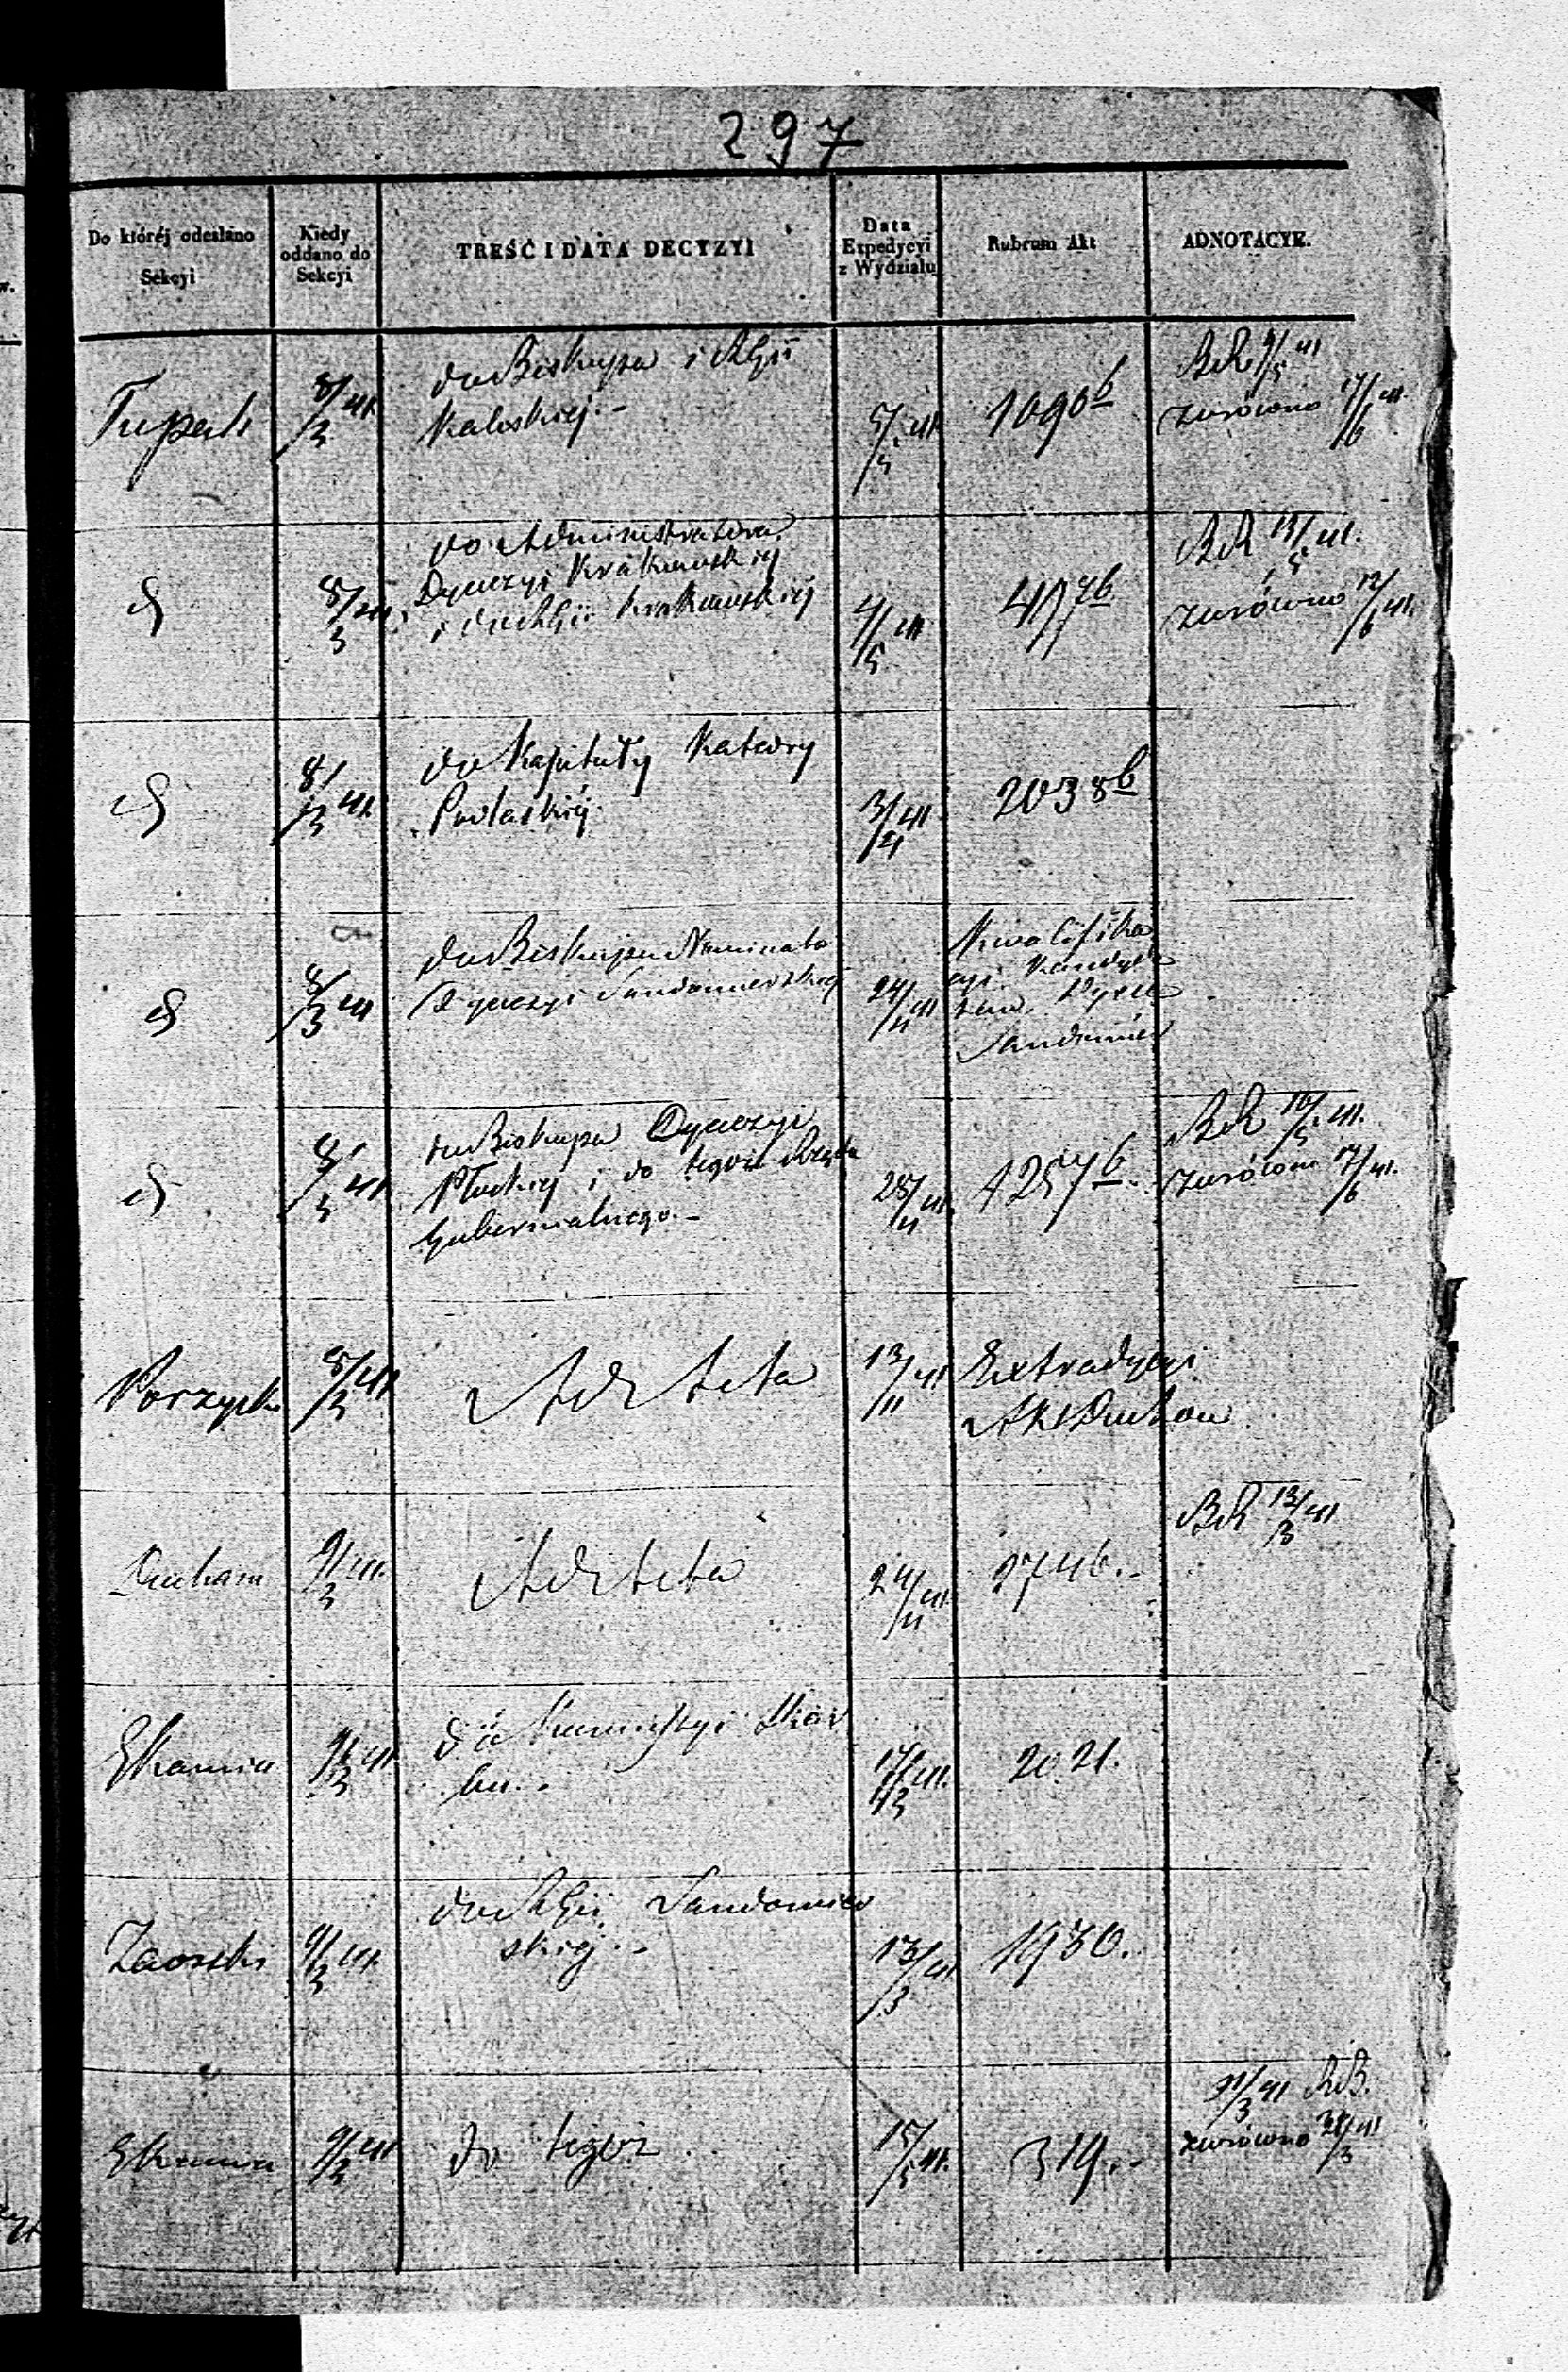 297
Do któréj odesłano
Sekcyi
Kiedy
oddano do
Sekcyi
TREŚĆ I DATA DECYZYI
Data
Expedycyi
z Wydziału
Rubrum Akt
ADNOTACYE.
8/3 41
do Biskupa i RGii
Kaliskiej.-
1090b
BR 9/5 41
zwrócono 17/6 41.
8/3 41
do Administratora
Dyecezyi Krakowskiej
i do RGii Krakowskiej
4/5 41
BR 13/5 41.
zwrócono 12/6 41.
8/3 41.
do Kapituły Katedry
Podlaskiej
2038b
8/3 41
do Biskupa Nominata
Dyecezyi Sandomierskiej
24/4 41
Kwalifika
cyi Kandyda
tów Dyece
Sandomier
8/3 41
do Biskupa Dyecezyi
Płockiej i do tegoż Rządu
Gubernialnego.-
28/4 41.
1257b.
BR 10/5 41.
zwrócono 17/6 41.
8/3 41
Ad Acta
13/11 41
Extradycyi
Akt Duchow
9/3 41.
Ad Acta
24/4 41
2746.-
BR 13/3 41
9/3 41.
do Kommissyi Skar
bu.-
2021.
Zaorski
9/3 41.
do RGii Sandomier
skiej.-
13/3 41
1930.
9/3 41
do tegoż
15/5 41.
319.-
21/3 41 RB.
zwrócono 28/3 41